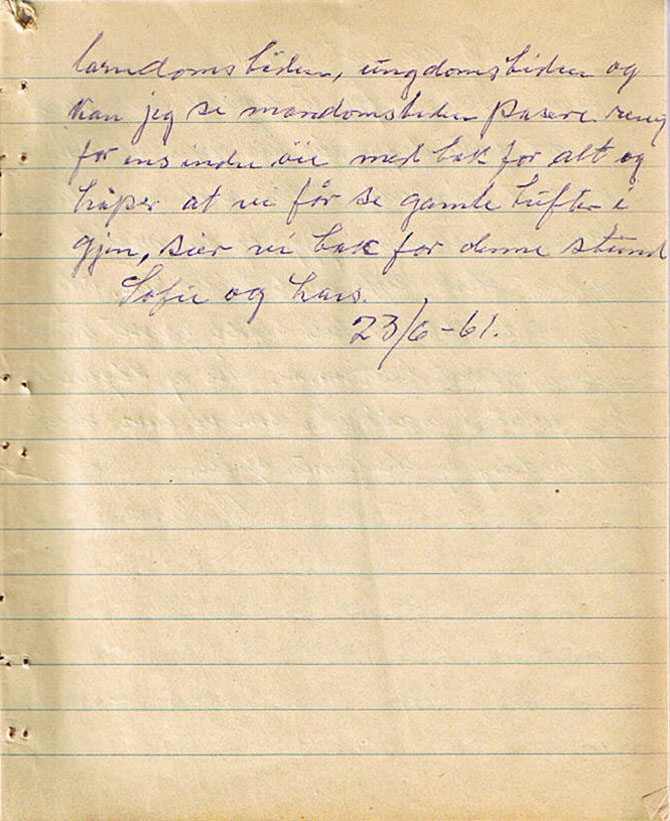 barndomstiden, ungdomstiden og
kan jeg si mandomstiden pasere
for ens indre öie med takk for alt og
håper at vi får se gamle tufter i
gjen, sier vi takk for denne stund
Sofie og Lars.
23/6-61.